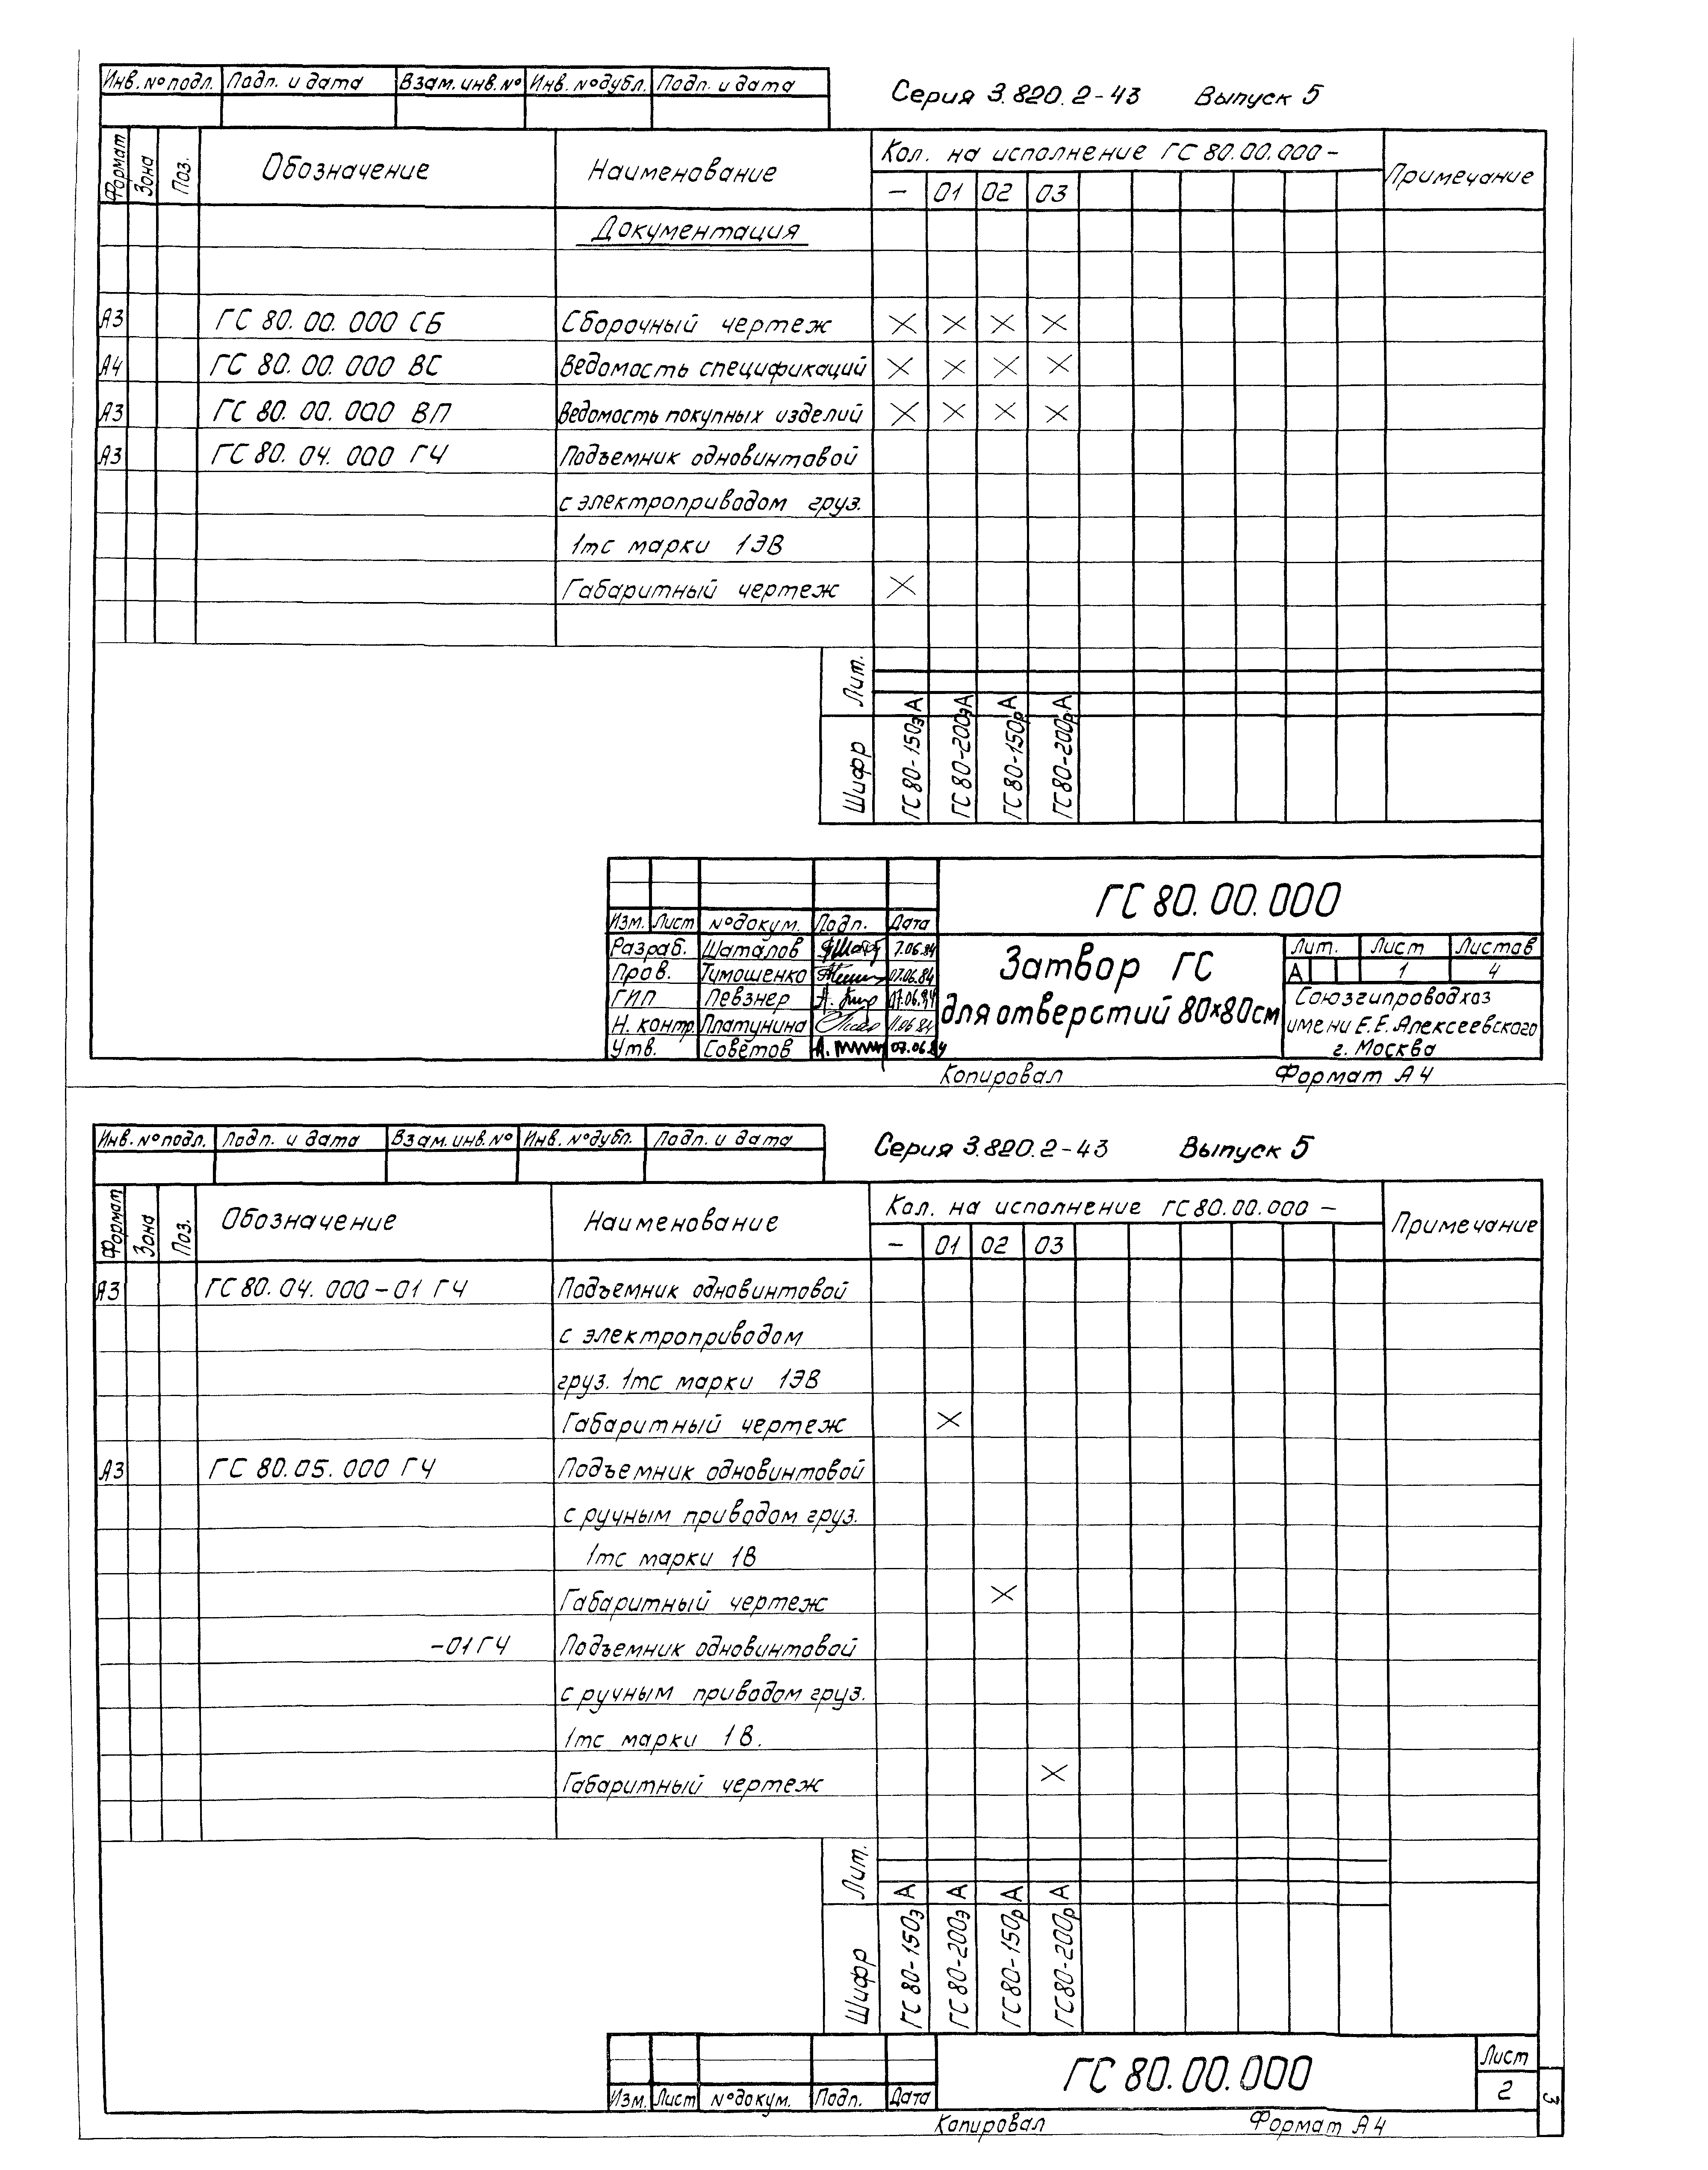 Инв. № подл. Подп. и дата Взам. инв. № Инв. № дубл. Подп. и дата
Серия 3.820.2-43 Выпуск 5
Формат Зона Поз. Обозначение Наименование Кол. на исполнение ГС 80.00.000 – Примечание
– 01 02 03
Документация
А3 ГС 80.00.000 СБ Сборочный чертеж X X X X
А4 ГС 80.00.000 ВС Ведомость спецификаций X X X X
А3 ГС 80.00.000 ВП Ведомость покупных изделий X X X X
А3 ГС 80.04.000 ГЧ Подъемник одновинтовой
с электроприводом груз.
1тс марки 1ЭВ
Габаритный чертеж X
Лит. А А А А
Шифр ГС 80-150э ГС 80-200э ГС 80-150р ГС 80-200р
ГС 80.00.000
Изм. Лист № докум. Подп. Дата
Разраб. Шаталов 7.06.84
Пров. Тимошенко 07.06.84
ГИП Певзнер 07.06.84
Н. контр. Платунина 11.06.84
Утв. Советов 07.06.84
Затвор ГС
для отверстий 80×80см
Лит. Лист Листов
А 1 4
Союзгипроводхоз
имени Е.Е. Алексеевского
г. Москва
Копировал Формат А4
Инв. № подл. Подп. и дата Взам. инв. № Инв. № дубл. Подп. и дата
Серия 3.820.2-43 Выпуск 5
Формат Зона Поз. Обозначение Наименование Кол. на исполнение ГС 80.00.000 – Примечание
– 01 02 03
А3 ГС 80.04.000-01 ГЧ Подъемник одновинтовой
с электроприводом
груз. 1тс марки 1ЭВ
Габаритный чертеж X
А3 ГС 80.05.000 ГЧ Подъемник одновинтовой
с ручным приводом груз.
1тс марки 1В
Габаритный чертеж X
-01 ГЧ Подъемник одновинтовой
с ручным приводом груз.
1тс марки 1В.
Габаритный чертеж X
Лит. А А А А
Шифр ГС 80-150э ГС 80-200э ГС 80-150р ГС 80-200р
ГС 80.00.000
Изм. Лист № докум. Подп. Дата
Лист
2
3
Копировал Формат А4